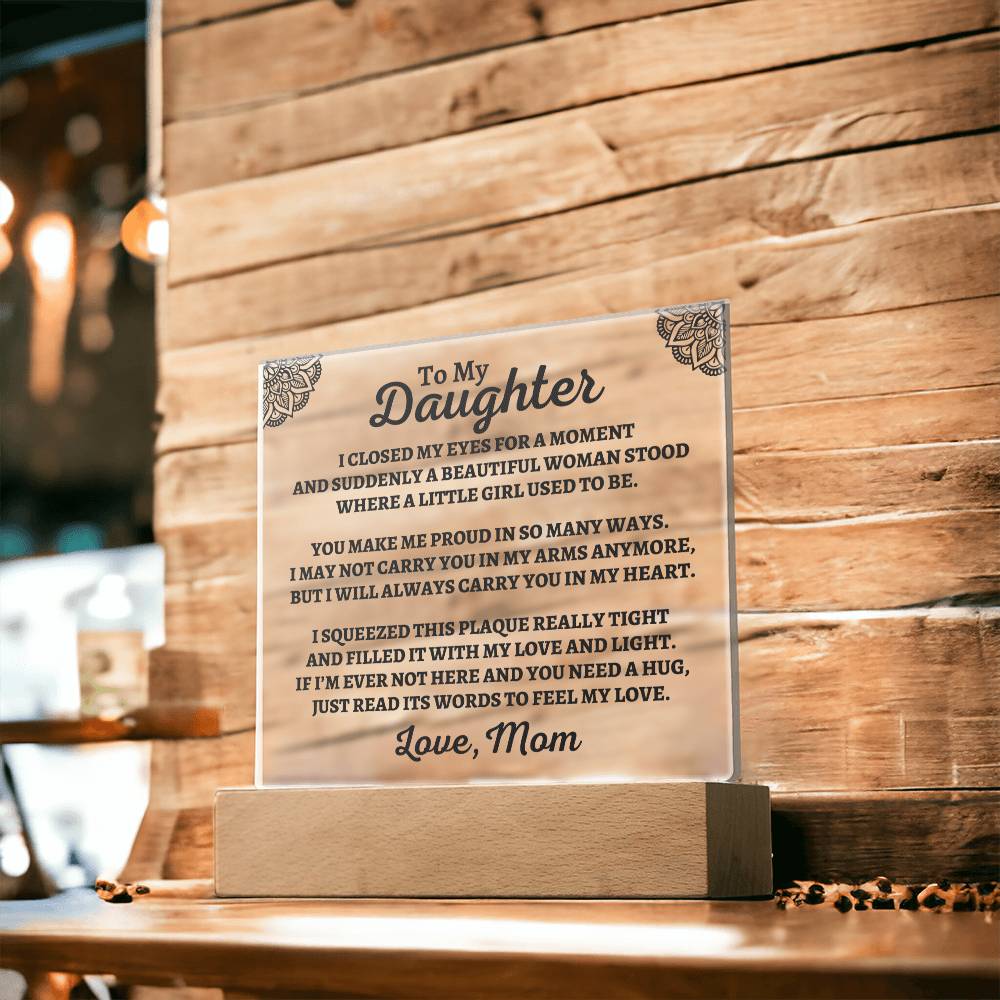 To My
Daughter
I CLOSED MY EYES FOR A MOMENT
AND SUDDENLY A BEAUTIFUL WOMAN STOOD
WHERE A LITTLE GIRL USED TO BE.
YOU MAKE ME PROUD IN SO MANY WAYS.
I MAY NOT CARRY YOU IN MY ARMS ANYMORE,
BUT I WILL ALWAYS CARRY YOU IN MY HEART.
I SQUEEZED THIS PLAQUE REALLY TIGHT
AND FILLED IT WITH MY LOVE AND LIGHT.
IF I'M EVER NOT HERE AND YOU NEED A HUG,
JUST READ ITS WORDS TO FEEL MY LOVE.
Love, Mom